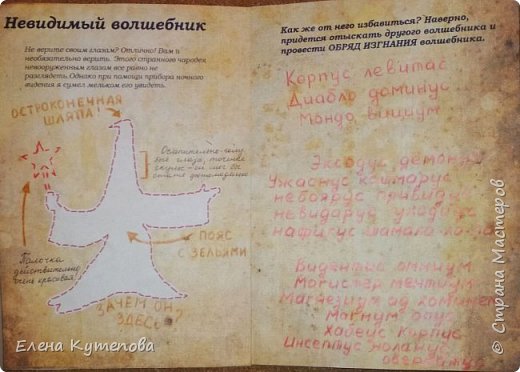 Невидимый волшебник
Не верите своим глазам? Отлично! Вам и
необязательно верить. Этого странного чародея
невооруженным глазом все равно не
разглядеть. Однако при помощи прибора ночного
видения я сумел мельком его увидеть.
ОСТРОКОНЕЧНАЯ
ШЛЯПА!
ПОЯС
С ЗЕЛЬЯМИ
Палочка
действительно
очень красивая!
ЗАЧЕМ ОН
ЗДЕСЬ?
Как же от него избавиться? Наверно,
придется отыскать другого волшебника и
провести ОБРЯД ИЗГНАНИЯ волшебника.
Корпус левитас
Диабло доминус
Мондо вициум
Эксодус
Ужастус
небоярус
невидарус
Видентус омниум
Магистер ментиум
Магнезиум ад хоминем
Магнум опус
Хабеус корпус
Инсептус ноланус
Елена Кутепова
© Страна Мастеров